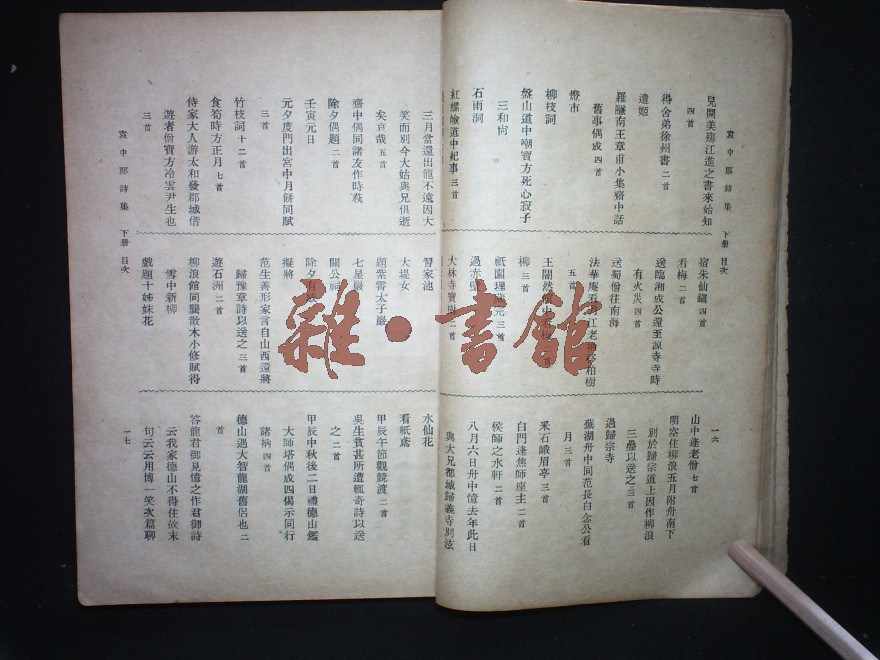 袁中郎詩集 下册 目次
一六
兒開美寄江進之書來始知
四首
得舍弟徐州書 二首
遺姬
羅隱南王章甫小集齋中話
舊事偶成 四首
燈市
柳枝詞
盤山道中嘲寶方死心寂子
三和尚
石雨洞
紅螺嶮道中紀事 三首
宿朱仙鎮 四首
看梅 二首
送臨湘成公還至源寺寺時
有火災 四首
送蜀僧往南海
五首
柳 三首
過赤壁
大林寺寶樹 二首
山中逢老僧 七首
明空住柳浪五月附舟南下
別於歸宗道上因作柳浪
三疊以送之 三首
過歸宗寺
蕪湖舟中同范長白念公看
月 三首
采石峨眉亭 三首
白門逢焦師座主 二首
侯師之水軒 二首
八月六日舟中憶去年此日
與大兄都城歸義寺別泫
三月當還出龍不遠因大
笑而別今大姑與兄俱逝
矣哀哉 五首
齋中偶同諸友作時萩
除夕偶題 二首
壬寅元日
元夕度門出宮中月餅同賦
三首
竹枝詞 十二首
食筍時方正月 七首
侍家大人游太和發郡城偕
遊者僧寶方冷雲尹生也
三首
習家池
大堤女
題紫霄太子巖
七星巖
關公祠
擬將
范生善形家言自山西還將
歸豫章詩以送之 三首
遊石洲 二首
柳浪館同龔散木小修賦得
雪中新柳
戲題十姊妹花
水仙花
看紙鳶
甲辰午節觀競渡 二首
吳生貧甚所遭輒奇詩以送
之 二首
甲辰中秋後二日禮德山鑑
大師塔偶成四偈示同行
諸衲 四首
德山遇大智龍湖舊侶也 二
首
答龍君御見憶之作君御詩
云我家德山不得住故末
句云云用博一笑次篇聊
袁中郎詩集 下册 目次
一七
雜·書館